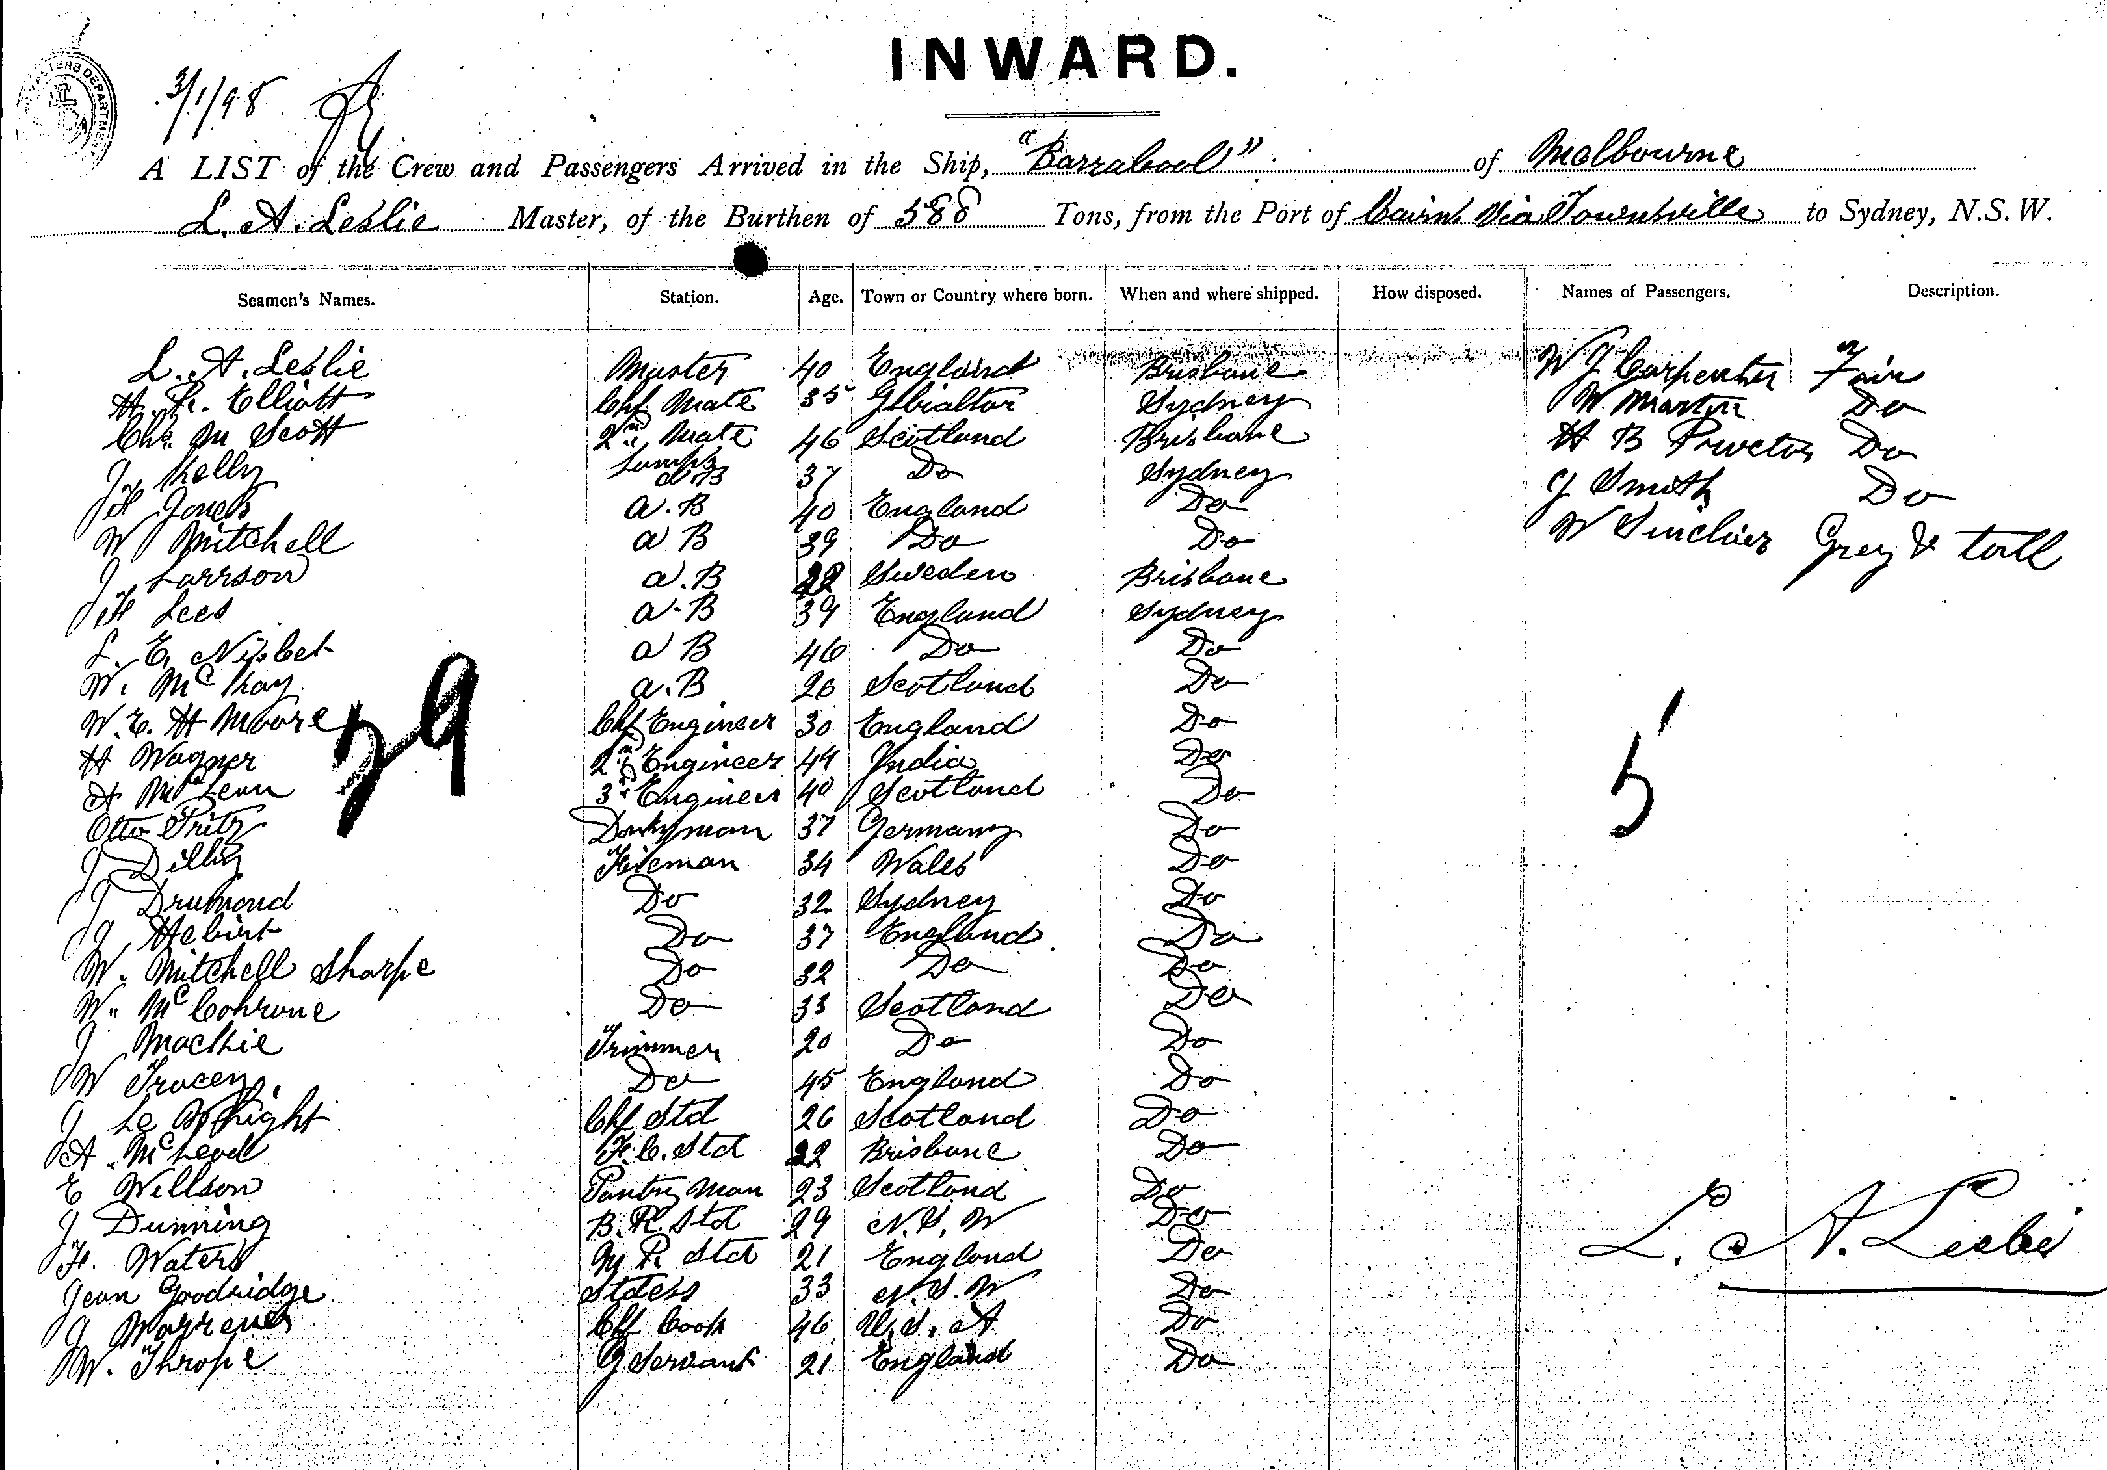 INWARD.
3/1/98
A LIST of the Crew and Passengers Arrived in the Ship, "Barrabool" of Melbourne
L. A. Leslie Master, of the Burthen of 588 Tons, from the Port of Cairns Via Townsville to Sydney, N.S.W.
Seamen's Names. Station. Age. Town or Country where born. When and where shipped. How disposed. Names of Passengers. Description.
L. A. Leslie Master 40 England Brisbane W J Carpenter Fair
Elliott Chf Mate 35 Gibraltor Sydney W Martin Do
Chs. M Scott 2nd Mate 46 Scotland Brisbane H B Procter Do
J Kelly Lamps AB 37 Do Sydney J Smith Do
H Jones A.B 40 England Do W Sinclier Grey & tall
W Mitchell A B 39 Do Do
J Larrson A.B 22 Sweden Brisbane
H Lees A.B 39 England Sydney
L. E. Nisbet A B 46 Do Do
W. McKay A.B 26 Scotland Do
W. E. H Moore Chf Engineer 30 England Do
H Wagner 2nd Engineer 44 India Do
A McLean 3rd Engineer 40 Scotland Do
Otto Fritz Donkyman 37 Germany Do
J Dilly Fireman 34 Wales Do
J Drumond Do 32 Sydney Do
J Hebirt Do 37 England Do
W. Mitchell Sharpe Do 32 Do Do
W. McCohrane Do 33 Scotland Do
J Mackie Trimmer 20 Do Do
W Tracey Do 45 England Do
J Le Wright Chf Std 26 Scotland Do
A McLeod F.C. Std 22 Brisbane Do
E Willson Pantry Man 23 Scotland Do
J Dunning B.R. Std 29 N.S.W Do
F. Waters Std 21 England Do
Jean Goodridge Stdess 33 N.S.W Do
J Warrenes Chf Cook 46 U.S.A Do
W. Thrope G Servant 21 England Do
29
5
L. A. Leslie